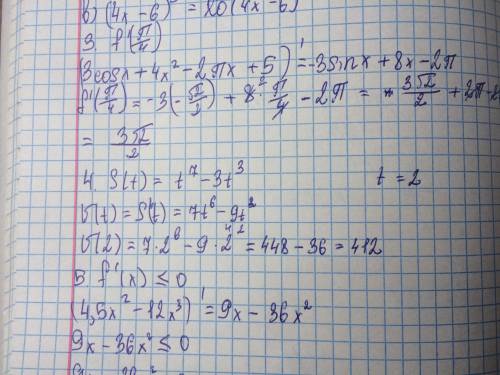 в) (4x - 6)' = 20(4x - 6)
3. f'(π/4)
(3cosx + 4x² - 2πx + 5)' = -3sinx + 8x - 2π
f'(π/4) = -3(-√2/2) + 8 · π/4 - 2π = 3√2/2 + 2π -
= 3√2/2
4. S(t) = t⁷ - 3t³ t = 2
V(t) = S'(t) = 7t⁶ - 9t²
V(2) = 7·2⁶ - 9·2² = 448 - 36 = 412
5. f'(x) ≤ 0
(4,5x² - 12x³)' = 9x - 36x²
9x - 36x² ≤ 0